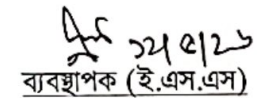 ১২/৫/২৬
ব্যবস্থাপক (ই.এস.এস)